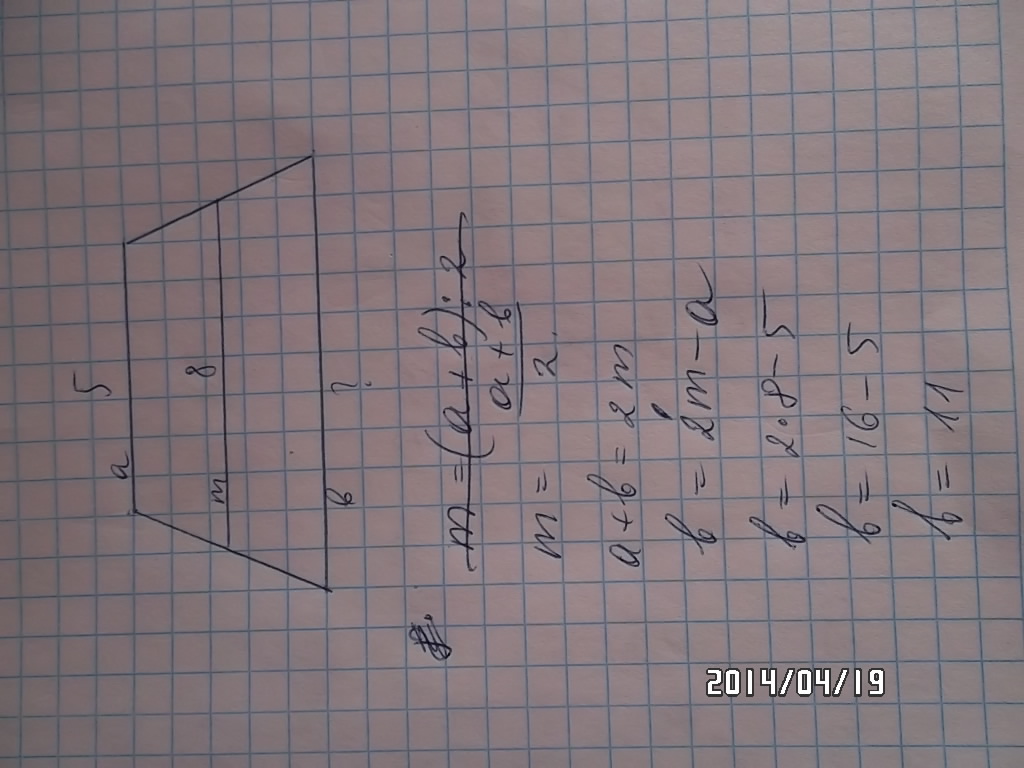 a 5
m 8
в ?
m = (a + в) : 2
m = a + в / 2
a + в = 2m
в = 2m - a
в = 2 · 8 - 5
в = 16 - 5
в = 11
2014/04/19